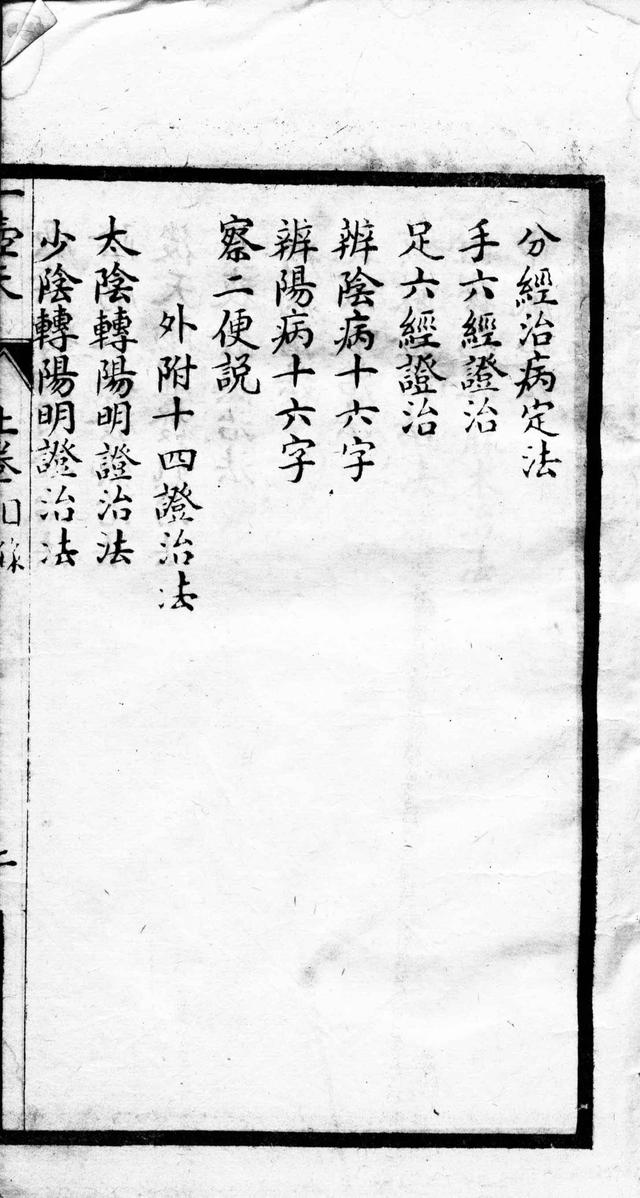 分經治病定法
手六經證治
足六經證治
辨陰病十六字
辨陽病十六字
察二便説
外附十四證治法
太陰轉陽明證治法
少陰轉陽明證治法
一壺天
上卷目錄